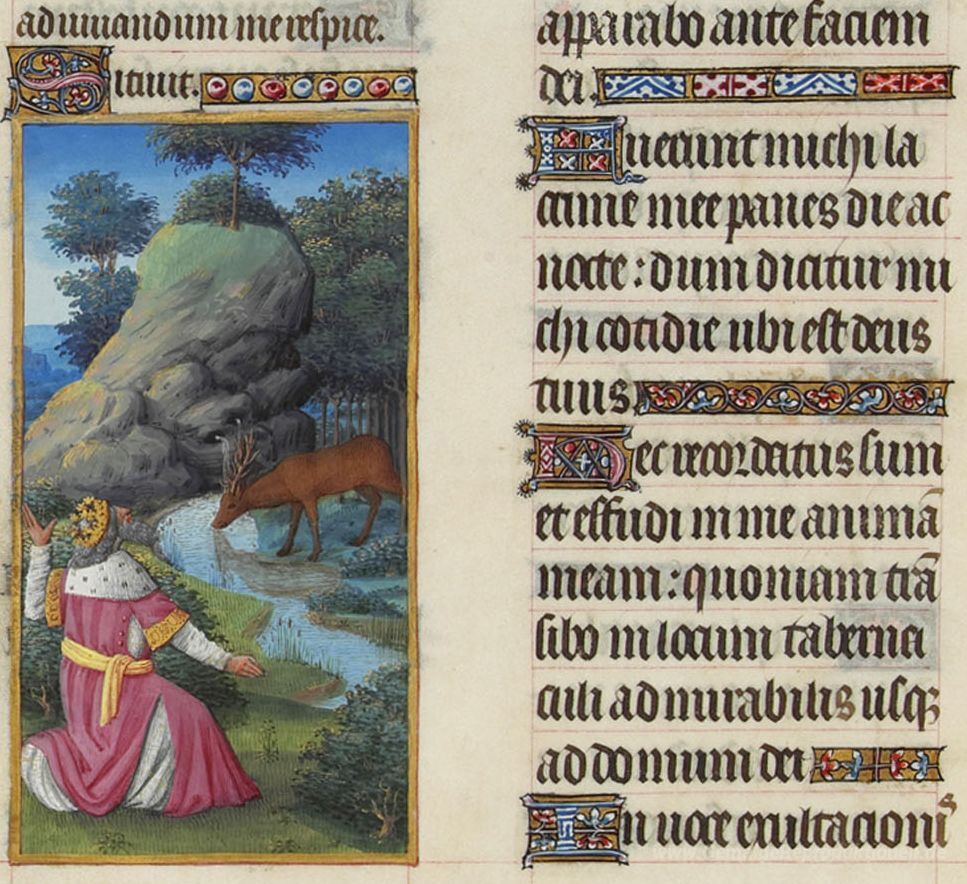 ad iuuandum me respice.
Sitiuit.
apparabo ante faciem
dei.
Fuerunt michi la
crime mee panes die ac
nocte : dum dicitur mi
chi cotidie ubi est deus
tuus.
Hec recordatus sum
et effudi in me animā
meam : quoniam trā
sibo in locum taberna
culi admirabilis usqꝫ
ad domum dei
In uoce exultacionis